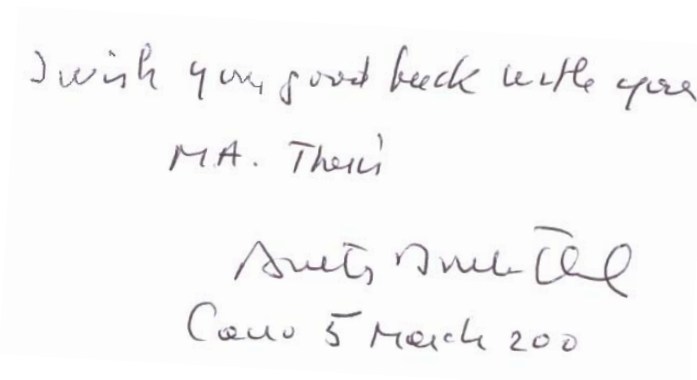 I wish you good luck with your
M.A. Thesis
Cairo 5 March 200